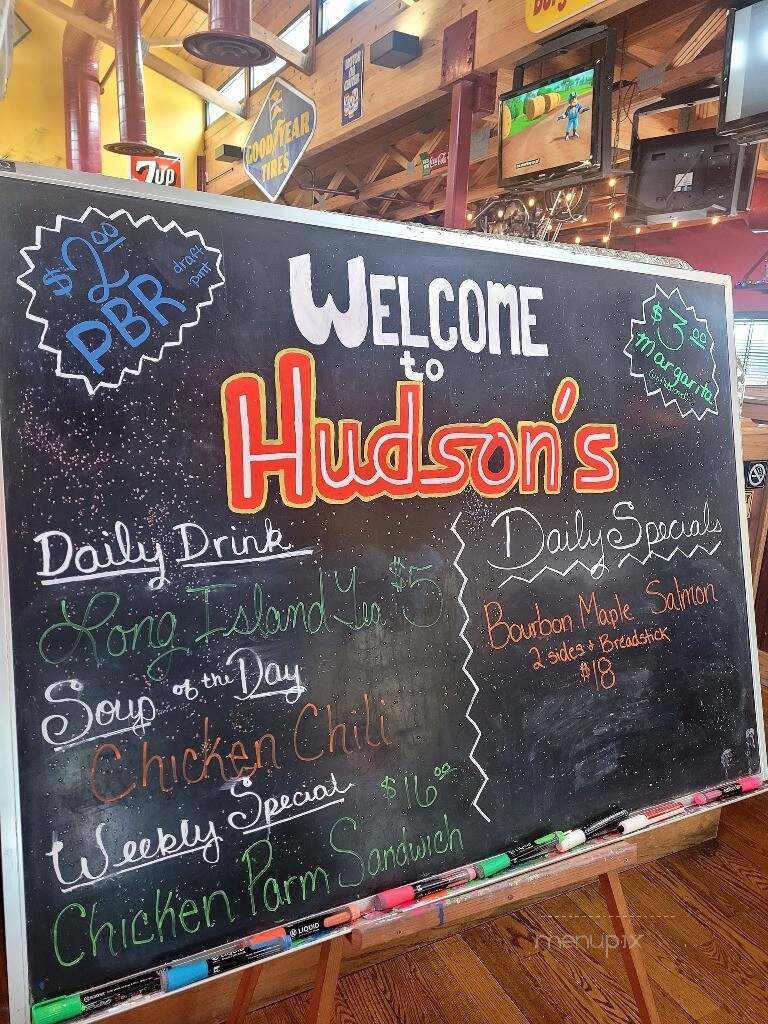 GOODYEAR
TIRES
7up
Coca-Cola
$2.00
PBR
draft
pint
WELCOME
to
Hudson's
$3.00
margarita
Daily Drink
Long Island Tea $5
Soup of the Day
Chicken Chili
Weekly Special $16.00
Chicken Parm Sandwich
Daily Specials
Bourbon Maple Salmon
2 sides + Breadstick
$18
LIQUID
menupix